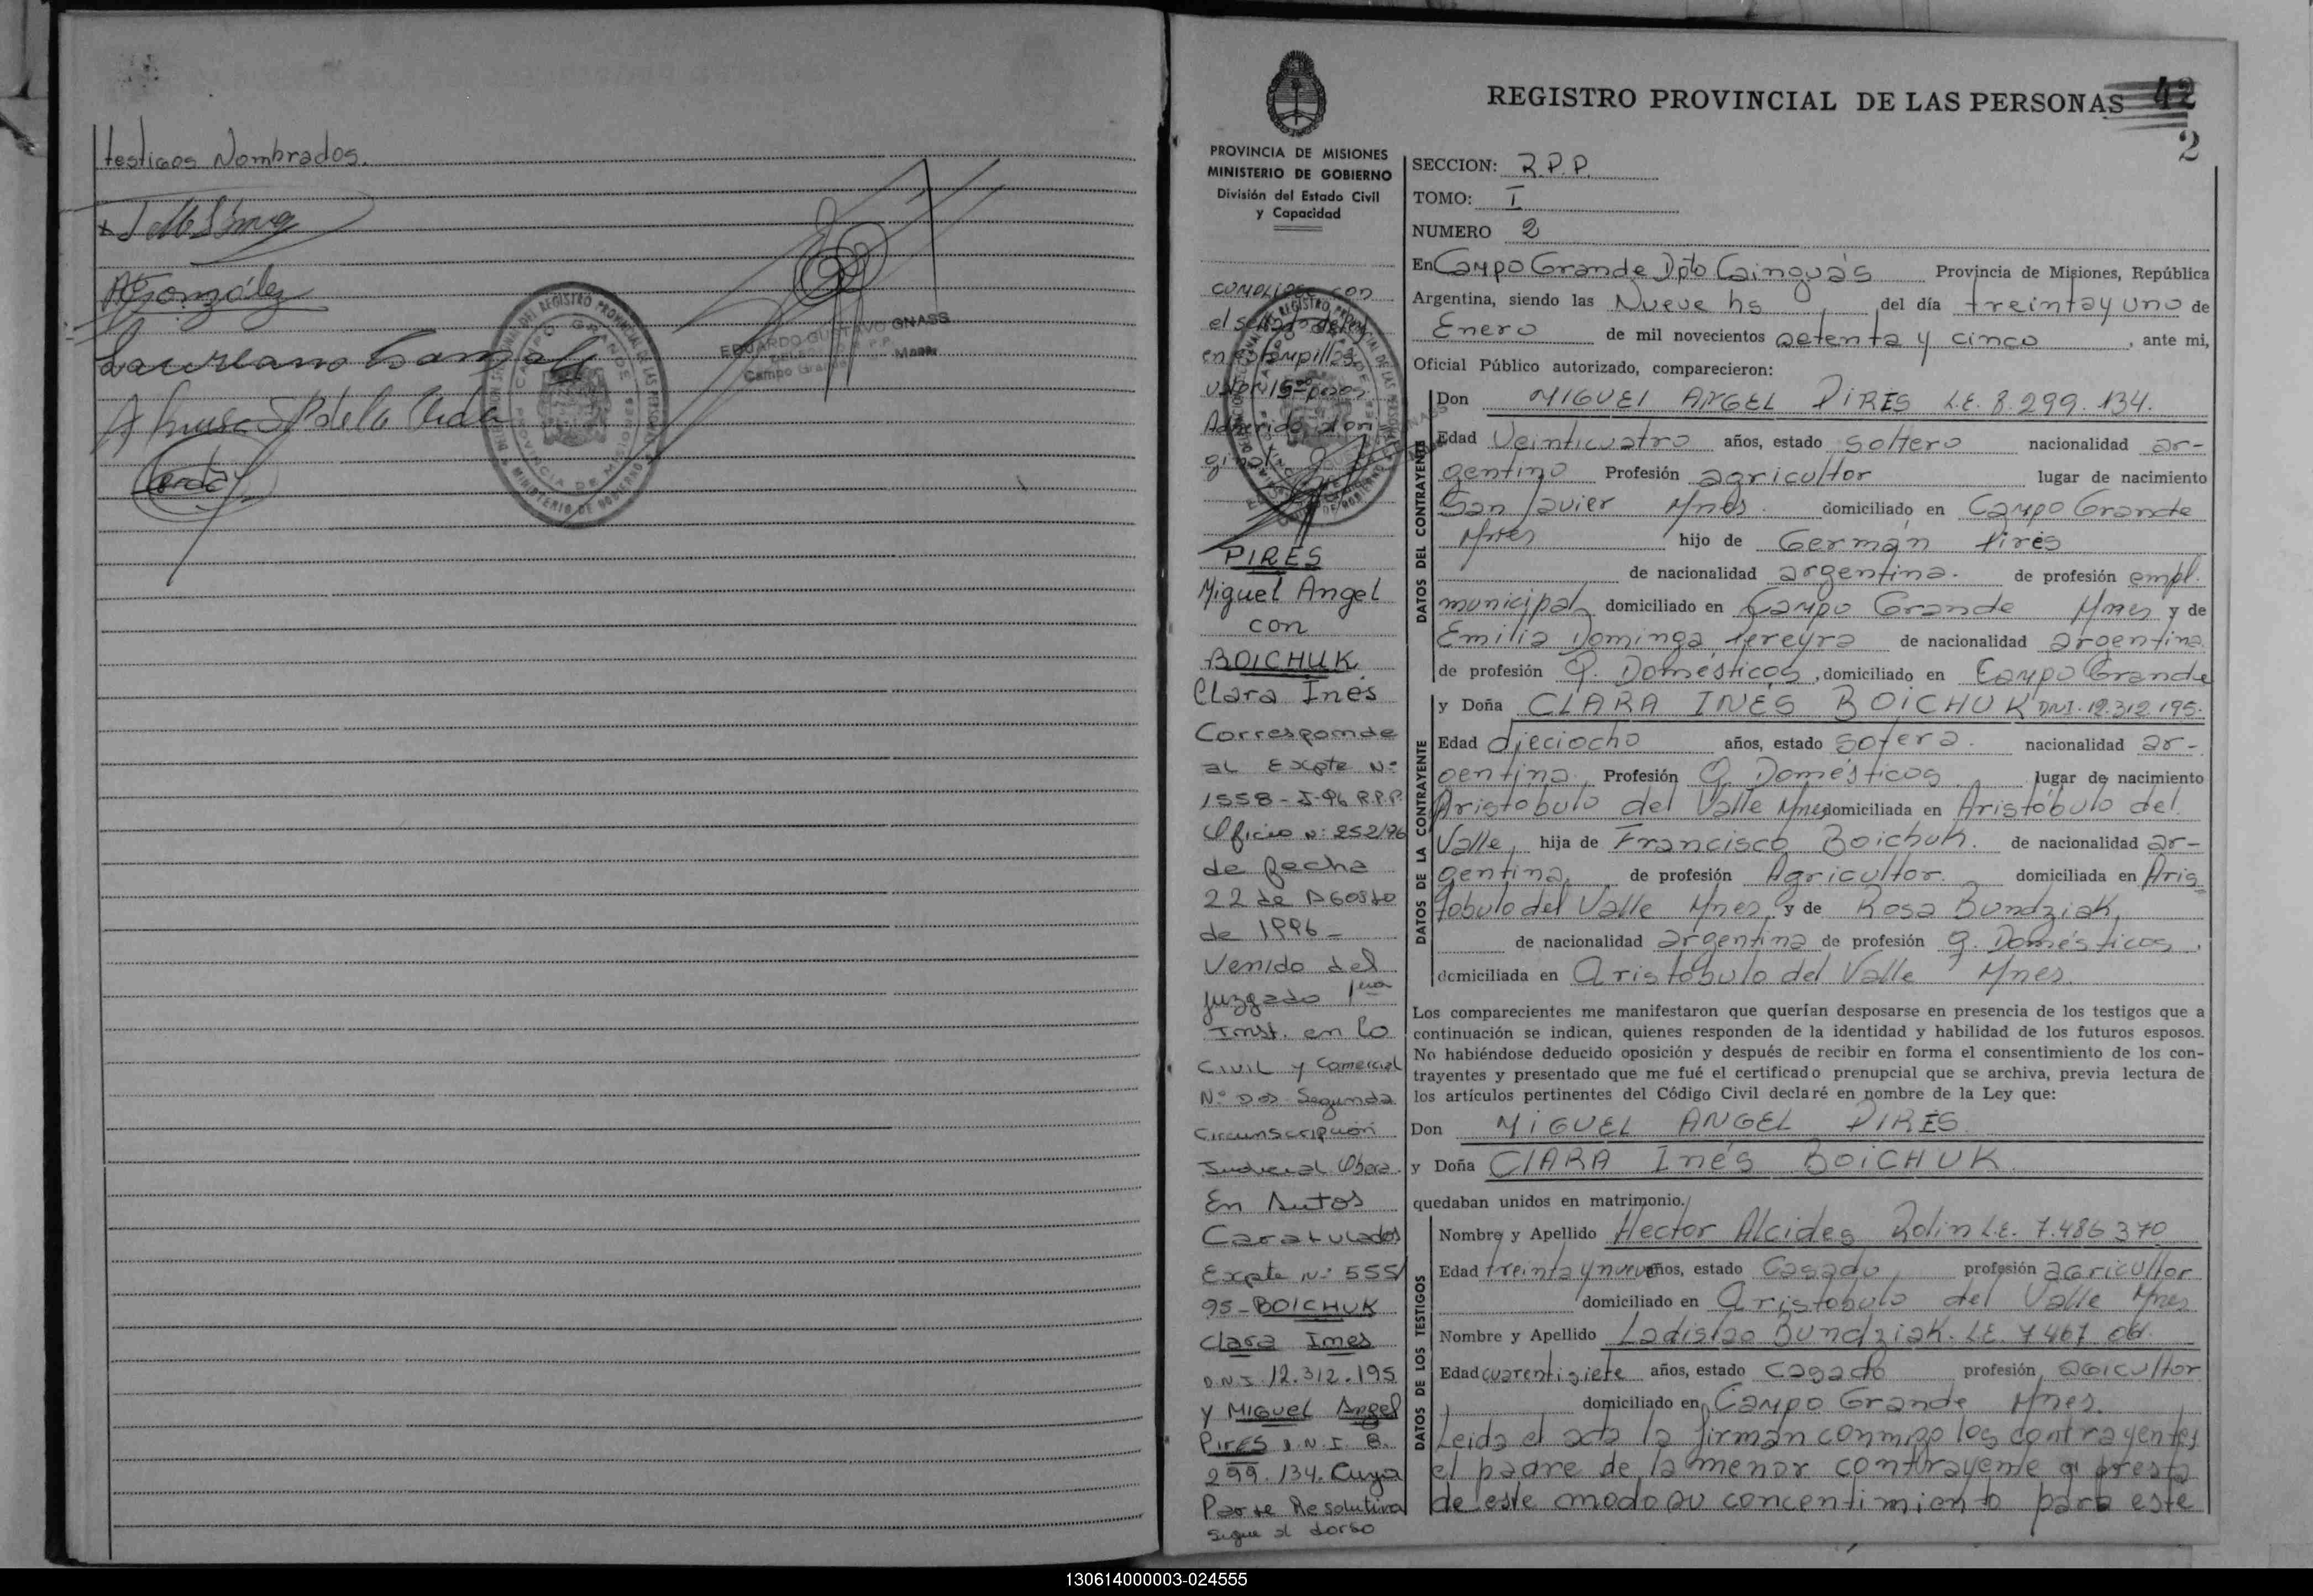 testigos Nombrados.
González
Laureano
EDUARDO GUSTAVO GNASS
Campo Grande
REGISTRO PROVINCIAL DE LAS PERSONAS 42
2
PROVINCIA DE MISIONES
MINISTERIO DE GOBIERNO
División del Estado Civil
y Capacidad
cumpliose con
el sellado de ley
en estampillas
valor 15 pesos
Adherido al ori
ginal
PIRES
Miguel Angel
con
BOICHUK
Clara Inés
Corresponde
al Expte Nº
1558-I-96 R.P.P.
Oficio Nº 252/96
de fecha
22 de Agosto
de 1996-
Venido del
juzgado 1era
Inst. en lo
Civil y Comercial
Nº Dos Segunda
Circunscripción
Judicial Obera.
En Autos
Caratulados
Expte Nº 555/
95-BOICHUK
Clara Ines
D.N.I. 12.312.195
y Miguel Angel
Pires D.N.I. 8.
299.134. Cuya
Parte Resolutiva
sigue al dorso
SECCION: R.P.P.
TOMO: I
NUMERO 2
En Campo Grande Dpto Cainguás Provincia de Misiones, República
Argentina, siendo las Nueve hs del día treinta y uno de
Enero de mil novecientos setenta y cinco, ante mi,
Oficial Público autorizado, comparecieron:
DATOS DEL CONTRAYENTE
Don MIGUEL ANGEL PIRES L.E. 8.299.134.
Edad Veinticuatro años, estado soltero nacionalidad ar-
gentino Profesión agricultor lugar de nacimiento
San Javier Mnes. domiciliado en Campo Grande
Mnes hijo de Germán Pires
de nacionalidad argentina. de profesión empl.
municipal, domiciliado en Campo Grande Mnes y de
Emilia Dominga Pereyra de nacionalidad argentina.
de profesión Q. Domésticos, domiciliado en Campo Grande
DATOS DE LA CONTRAYENTE
y Doña CLARA INÉS BOICHUK DNI.12.312.195.
Edad dieciocho años, estado sotera. nacionalidad ar-
gentina, Profesión Q. Domésticos lugar de nacimiento
Aristobulo del Valle Mnes domiciliada en Aristóbulo del
Valle, hija de Francisco Boichuk. de nacionalidad ar-
gentina, de profesión Agricultor. domiciliada en Aris
tobulo del Valle Mnes, y de Rosa Bundziak,
de nacionalidad argentina de profesión q. Domésticos,
domiciliada en Aristóbulo del Valle Mnes.
Los comparecientes me manifestaron que querían desposarse en presencia de los testigos que a
continuación se indican, quienes responden de la identidad y habilidad de los futuros esposos.
No habiéndose deducido oposición y después de recibir en forma el consentimiento de los con-
trayentes y presentado que me fué el certificado prenupcial que se archiva, previa lectura de
los artículos pertinentes del Código Civil declaré en nombre de la Ley que:
Don MIGUEL ANGEL PIRES
y Doña CLARA Inés BOICHUK.
quedaban unidos en matrimonio.
DATOS DE LOS TESTIGOS
Nombre y Apellido Hector Alcides Rolin L.E. 7.486370
Edad treinta y nueve años, estado Casado profesión agricultor
domiciliado en Aristobulo del Valle Mnes
Nombre y Apellido Ladislao Bundziak. L.E. 7467
Edad cuarentisiete años, estado casado profesión agicultor
domiciliado en Campo Grande Mnes.
Leida el acta la firman conmigo los contrayentes
el padre de la menor contrayente q presta
de este modo su concentimiento para este
130614000003-024555